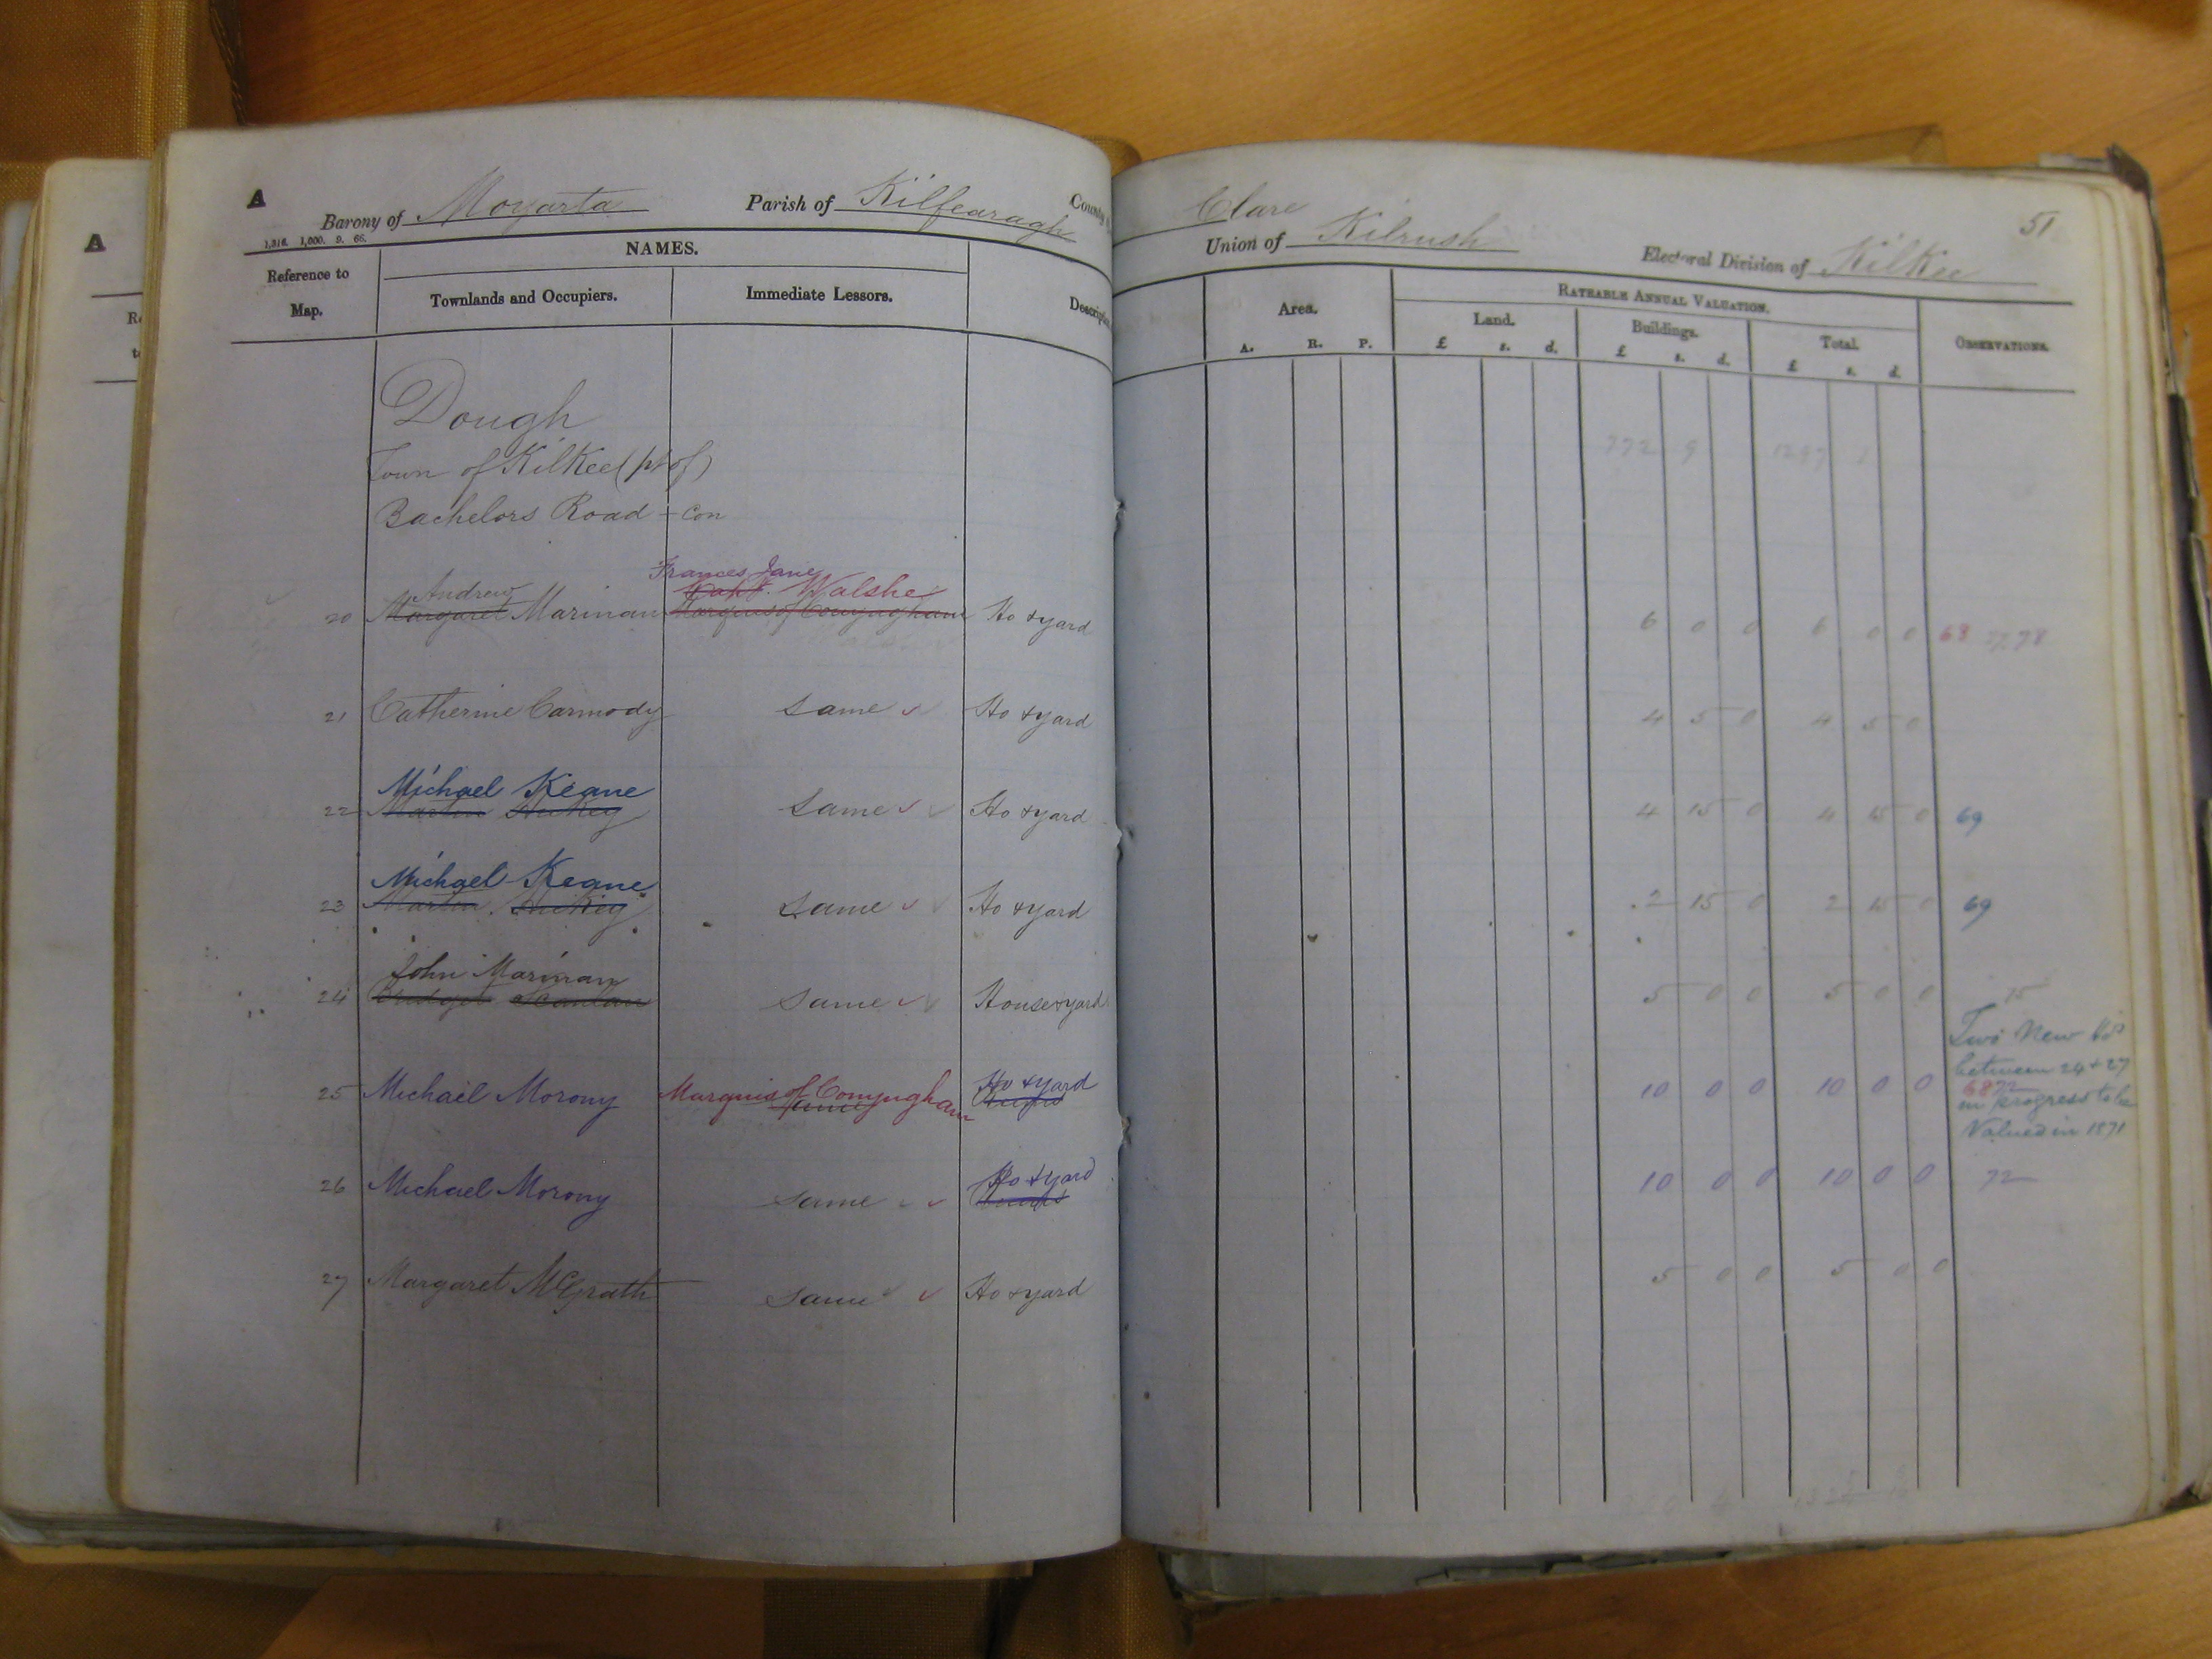 A
A
Barony of Moyarta Parish of Kilfearagh County
Clare
Union of Kilrush Electoral Division of Kilkee
51
1,316. 1,000. 9. 66.
Reference to
Map.
NAMES.
Townlands and Occupiers.
Immediate Lessors.
Area.
A. R. P.
RATEABLE ANNUAL VALUATION.
Land.
£ s. d.
Buildings.
£ s. d.
Total.
£ s. d.
OBSERVATIONS.
Dough
Town of Kilkee (pt of)
772 9
Bachelors Road - con
Frances Jane
Capt. Walshe
Andrew
20 Margaret Marinan Marquis of Conyngham Ho & yard 6 0 0 6 0 0 68 77.78
21 Catherine Carmody Same Ho & yard 4 5 0 4 5 0
Michael Keane
22 Martin Hickey Same Ho & yard 4 15 0 4 15 0 69
Michael Keane
23 Martin Hickey Same Ho & yard 2 15 0 2 15 0 69
John Marinan
24 Bridget Scanlan Same House & yard 5 0 0 5 0 0 75
Two New Ho's
between 24 & 27
in progress to be
Valued in 1871
25 Michael Morony Marquis of Conyngham Ho & yard 10 0 0 10 0 0 68 72
Same
26 Michael Morony Same Ho & yard 10 0 0 10 0 0 72
27 Margaret McGrath Same Ho & yard 5 0 0 5 0 0